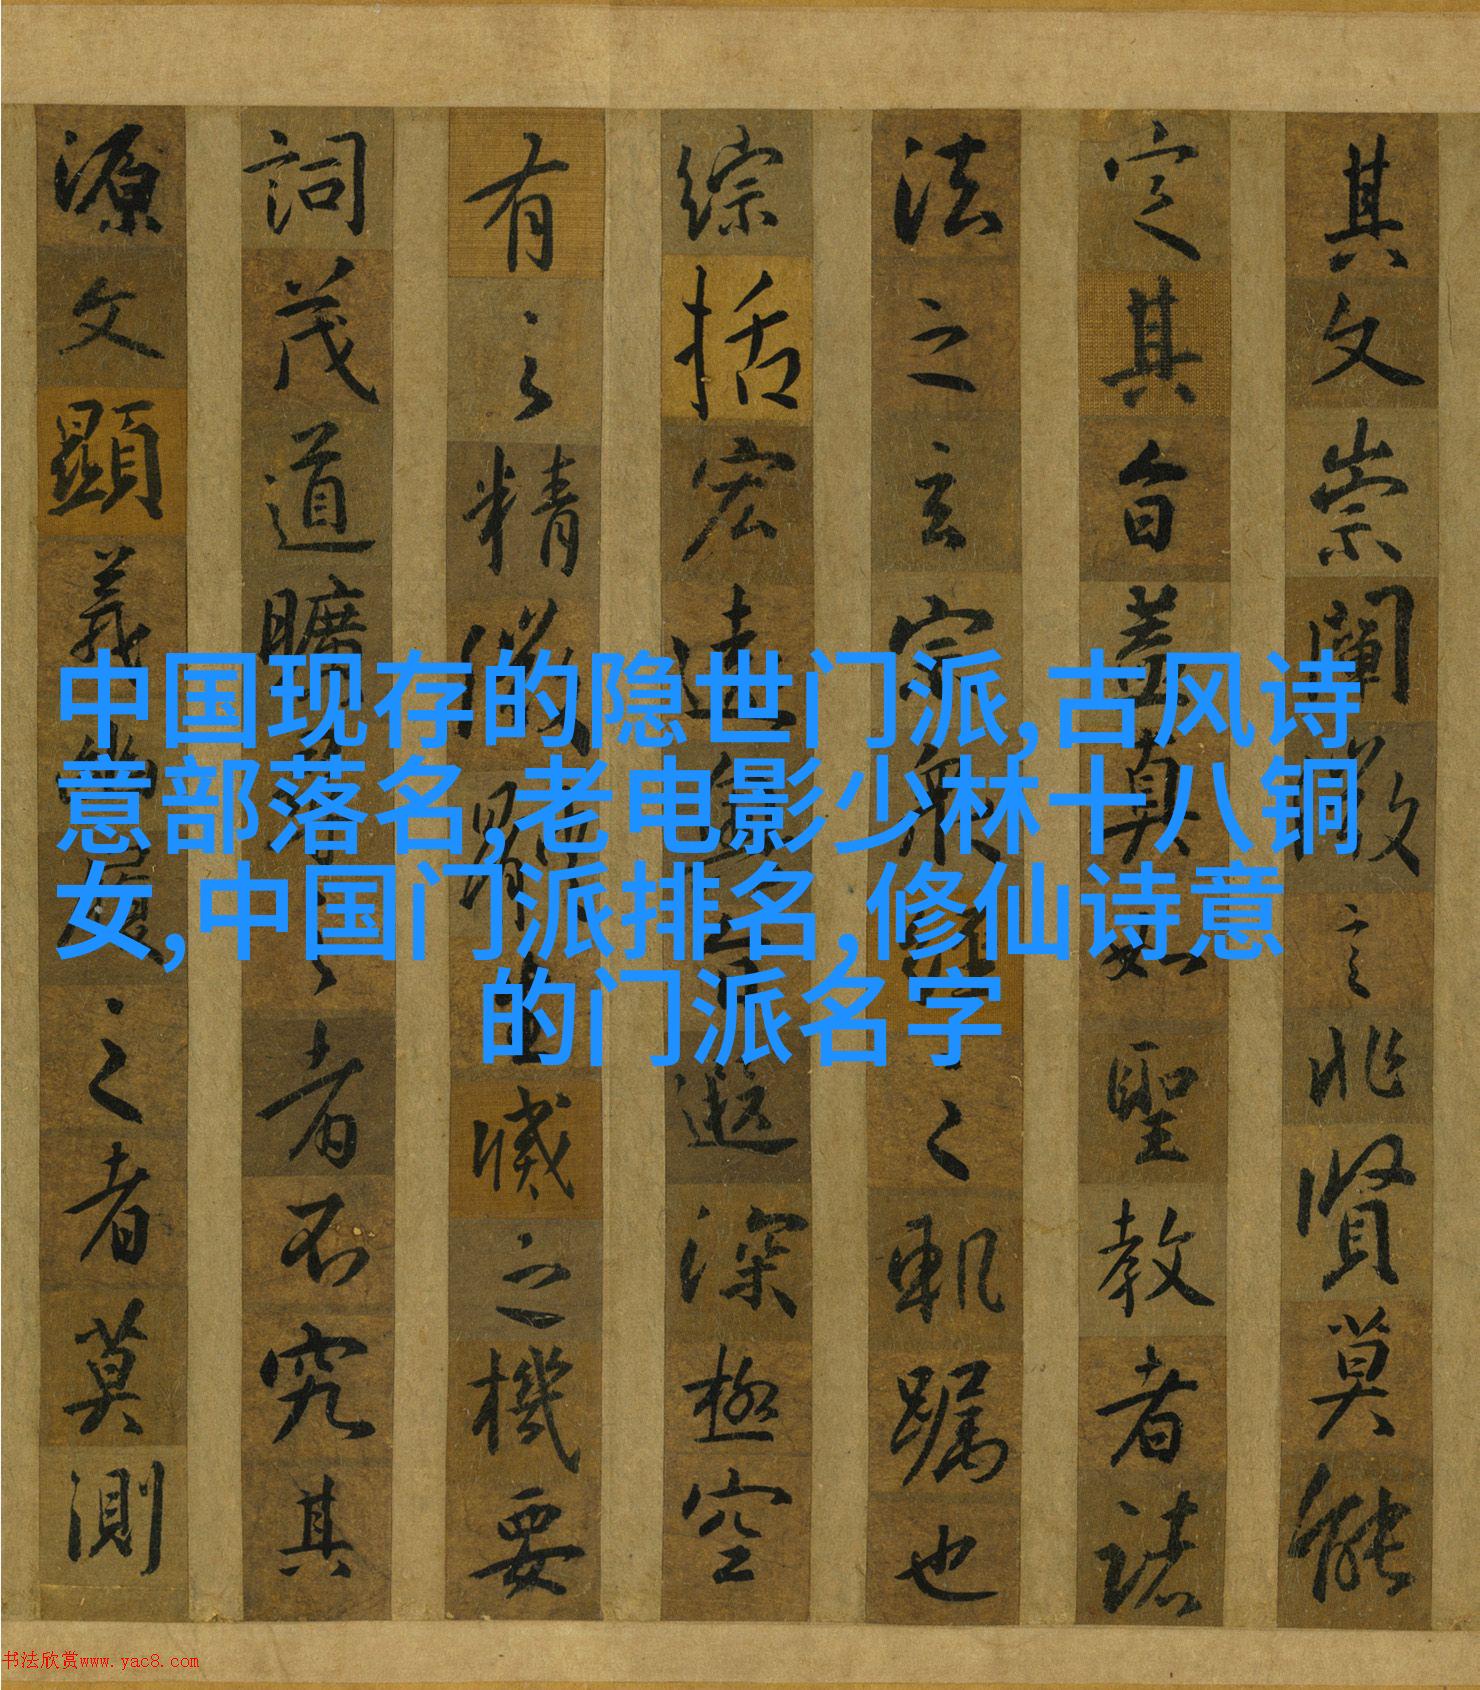 中国现存的隐世门派,古风诗
意部落名,老电影少林十八铜
女,中国门派排名,修仙诗意
的门派名字
其文崇闡微言非賢莫能
定其旨蓋真如聖教者諸
法之玄宗眾經之軌躅也
綜括宏遠旨遐深極空
有之精微體生滅之機要
詞茂道曠之者不究其
源文顯義幽履之者莫測
书法欣赏www.yac8.com